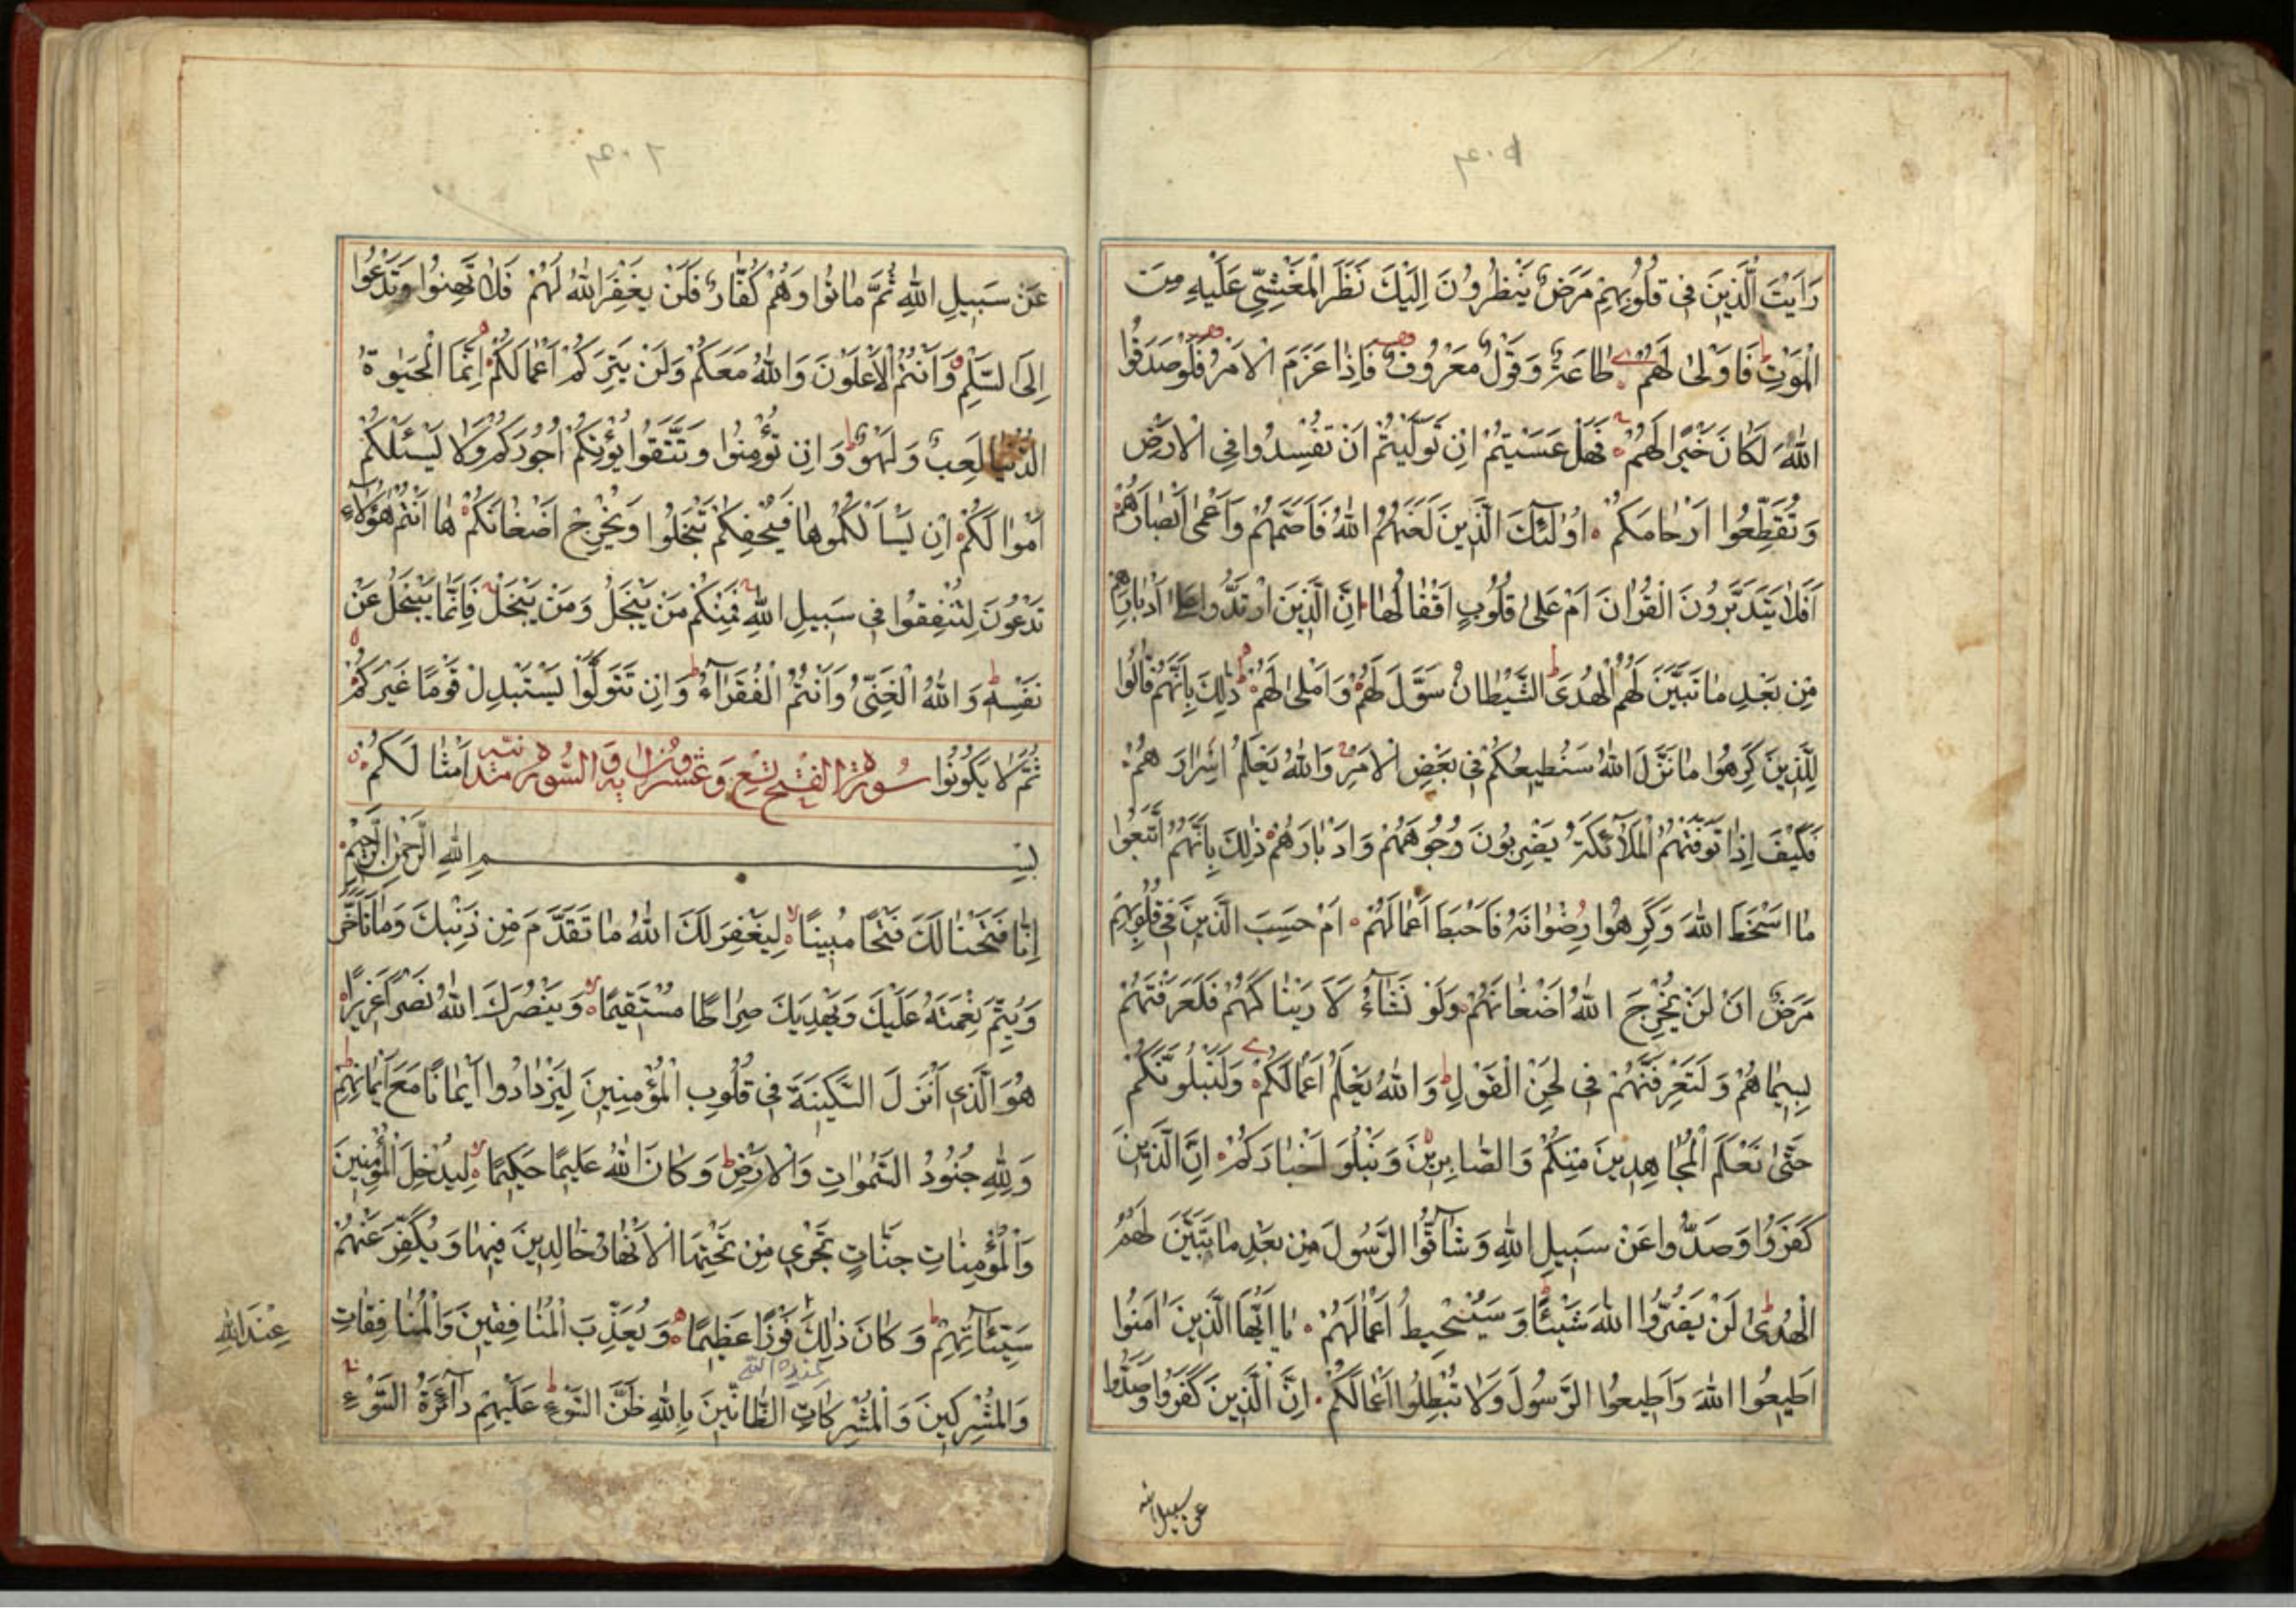 ٤٠٥
رَاَيْتَ الَّذِينَ فِي قُلُوبِهِمْ مَرَضٌ يَنْظُرُونَ اِلَيْكَ نَظَرَ الْمَغْشِيِّ عَلَيْهِ مِنَ
الْمَوْتِ فَاَوْلىٰ لَهُمْ طَاعَةٌ وَقَوْلٌ مَعْرُوفٌ فَاِذَا عَزَمَ الْاَمْرُ فَلَوْ صَدَقُوا
اللّٰهَ لَكَانَ خَيْرًا لَهُمْ فَهَلْ عَسَيْتُمْ اِنْ تَوَلَّيْتُمْ اَنْ تُفْسِدُوا فِي الْاَرْضِ
وَتُقَطِّعُوا اَرْحَامَكُمْ اُولٰئِكَ الَّذِينَ لَعَنَهُمُ اللّٰهُ فَاَصَمَّهُمْ وَاَعْمٰى اَبْصَارَهُمْ
اَفَلَا يَتَدَبَّرُونَ الْقُرْاٰنَ اَمْ عَلىٰ قُلُوبٍ اَقْفَالُهَا اِنَّ الَّذِينَ ارْتَدُّوا عَلىٰ اَدْبَارِهِمْ
مِنْ بَعْدِ مَا تَبَيَّنَ لَهُمُ الْهُدَى الشَّيْطَانُ سَوَّلَ لَهُمْ وَاَمْلىٰ لَهُمْ ذٰلِكَ بِاَنَّهُمْ قَالُوا
لِلَّذِينَ كَرِهُوا مَا نَزَّلَ اللّٰهُ سَنُطِيعُكُمْ فِي بَعْضِ الْاَمْرِ وَاللّٰهُ يَعْلَمُ اِسْرَارَهُمْ
فَكَيْفَ اِذَا تَوَفَّتْهُمُ الْمَلٰٓئِكَةُ يَضْرِبُونَ وُجُوهَهُمْ وَاَدْبَارَهُمْ ذٰلِكَ بِاَنَّهُمُ اتَّبَعُوا
مَا اَسْخَطَ اللّٰهَ وَكَرِهُوا رِضْوَانَهُ فَاَحْبَطَ اَعْمَالَهُمْ اَمْ حَسِبَ الَّذِينَ فِي قُلُوبِهِمْ
مَرَضٌ اَنْ لَنْ يُخْرِجَ اللّٰهُ اَضْغَانَهُمْ وَلَوْ نَشَٓاءُ لَاَرَيْنَاكَهُمْ فَلَعَرَفْتَهُمْ
بِسِيمَاهُمْ وَلَتَعْرِفَنَّهُمْ فِي لَحْنِ الْقَوْلِ وَاللّٰهُ يَعْلَمُ اَعْمَالَكُمْ وَلَنَبْلُوَنَّكُمْ
حَتّٰى نَعْلَمَ الْمُجَاهِدِينَ مِنْكُمْ وَالصَّابِرِينَ وَنَبْلُوَ اَخْبَارَكُمْ اِنَّ الَّذِينَ
كَفَرُوا وَصَدُّوا عَنْ سَبِيلِ اللّٰهِ وَشَٓاقُّوا الرَّسُولَ مِنْ بَعْدِ مَا تَبَيَّنَ لَهُمُ
الْهُدىٰ لَنْ يَضُرُّوا اللّٰهَ شَيْئًا وَسَيُحْبِطُ اَعْمَالَهُمْ يَا اَيُّهَا الَّذِينَ اٰمَنُوا
اَطِيعُوا اللّٰهَ وَاَطِيعُوا الرَّسُولَ وَلَا تُبْطِلُوا اَعْمَالَكُمْ اِنَّ الَّذِينَ كَفَرُوا وَصَدُّوا
عن سبيل الله
٤٠٦
عَنْ سَبِيلِ اللّٰهِ ثُمَّ مَاتُوا وَهُمْ كُفَّارٌ فَلَنْ يَغْفِرَ اللّٰهُ لَهُمْ فَلَا تَهِنُوا وَتَدْعُوا
اِلَى السَّلْمِ وَاَنْتُمُ الْاَعْلَوْنَ وَاللّٰهُ مَعَكُمْ وَلَنْ يَتِرَكُمْ اَعْمَالَكُمْ اِنَّمَا الْحَيٰوةُ
الدُّنْيَا لَعِبٌ وَلَهْوٌ وَاِنْ تُؤْمِنُوا وَتَتَّقُوا يُؤْتِكُمْ اُجُورَكُمْ وَلَا يَسْئَلْكُمْ
اَمْوَالَكُمْ اِنْ يَسْاَلْكُمُوهَا فَيُحْفِكُمْ تَبْخَلُوا وَيُخْرِجْ اَضْغَانَكُمْ هَا اَنْتُمْ هٰٓؤُلَٓاءِ
تُدْعَوْنَ لِتُنْفِقُوا فِي سَبِيلِ اللّٰهِ فَمِنْكُمْ مَنْ يَبْخَلُ وَمَنْ يَبْخَلْ فَاِنَّمَا يَبْخَلُ عَنْ
نَفْسِهِ وَاللّٰهُ الْغَنِيُّ وَاَنْتُمُ الْفُقَرَٓاءُ وَاِنْ تَتَوَلَّوْا يَسْتَبْدِلْ قَوْمًا غَيْرَكُمْ
ثُمَّ لَا يَكُونُوا اَمْثَالَكُمْ
سُورَةُ الْفَتْحِ تِسْعٌ وَعِشْرُونَ
بِسْمِ اللّٰهِ الرَّحْمٰنِ الرَّحِيمِ
اِنَّا فَتَحْنَا لَكَ فَتْحًا مُبِينًا لِيَغْفِرَ لَكَ اللّٰهُ مَا تَقَدَّمَ مِنْ ذَنْبِكَ وَمَا تَاَخَّرَ
وَيُتِمَّ نِعْمَتَهُ عَلَيْكَ وَيَهْدِيَكَ صِرَاطًا مُسْتَقِيمًا وَيَنْصُرَكَ اللّٰهُ نَصْرًا عَزِيزًا
هُوَ الَّذِي اَنْزَلَ السَّكِينَةَ فِي قُلُوبِ الْمُؤْمِنِينَ لِيَزْدَادُوا اِيمَانًا مَعَ اِيمَانِهِمْ
وَلِلّٰهِ جُنُودُ السَّمٰوَاتِ وَالْاَرْضِ وَكَانَ اللّٰهُ عَلِيمًا حَكِيمًا لِيُدْخِلَ الْمُؤْمِنِينَ
وَالْمُؤْمِنَاتِ جَنَّاتٍ تَجْرِي مِنْ تَحْتِهَا الْاَنْهَارُ خَالِدِينَ فِيهَا وَيُكَفِّرَ عَنْهُمْ
سَيِّئَاتِهِمْ وَكَانَ ذٰلِكَ فَوْزًا عَظِيمًا وَيُعَذِّبَ الْمُنَافِقِينَ وَالْمُنَافِقَاتِ
عِنْدَ اللّٰهِ
وَالْمُشْرِكِينَ وَالْمُشْرِكَاتِ الظَّانِّينَ بِاللّٰهِ ظَنَّ السَّوْءِ عَلَيْهِمْ دَٓائِرَةُ السَّوْءِ